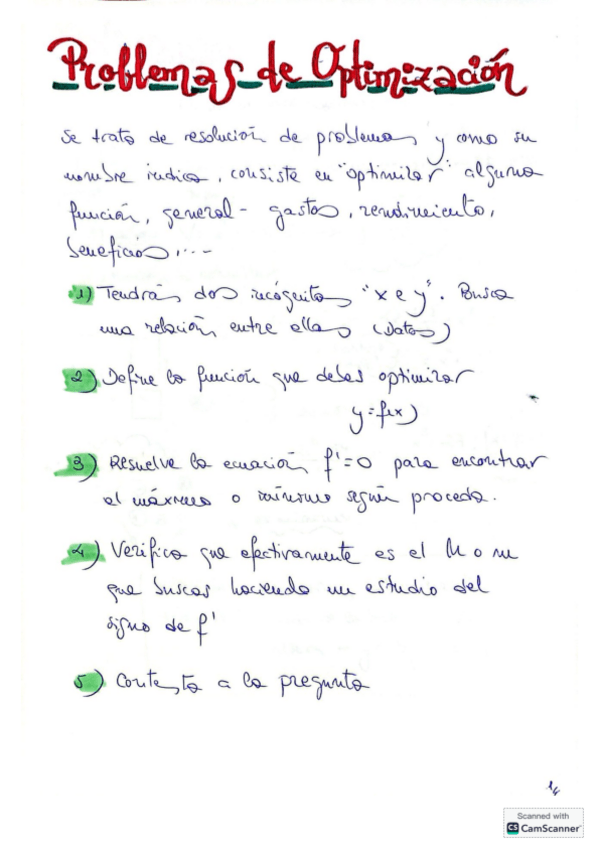 Problemas de Optimización
Se trata de resolución de problemas y como su
nombre indica, consiste en "optimizar" alguna
función, general - gastos, rendimiento,
beneficios,...
1) Tendrás dos incógnitas "x e y". Busca
una relación entre ellas (Datos)
2) Define la función que debes optimizar
y=f(x)
3) Resuelve la ecuación f'=0 para encontrar
el máximo o mínimo según proceda.
4) Verifica que efectivamente es el M o m
que buscas haciendo un estudio del
signo de f'
5) Contesta a la pregunta
Scanned with
CS CamScanner